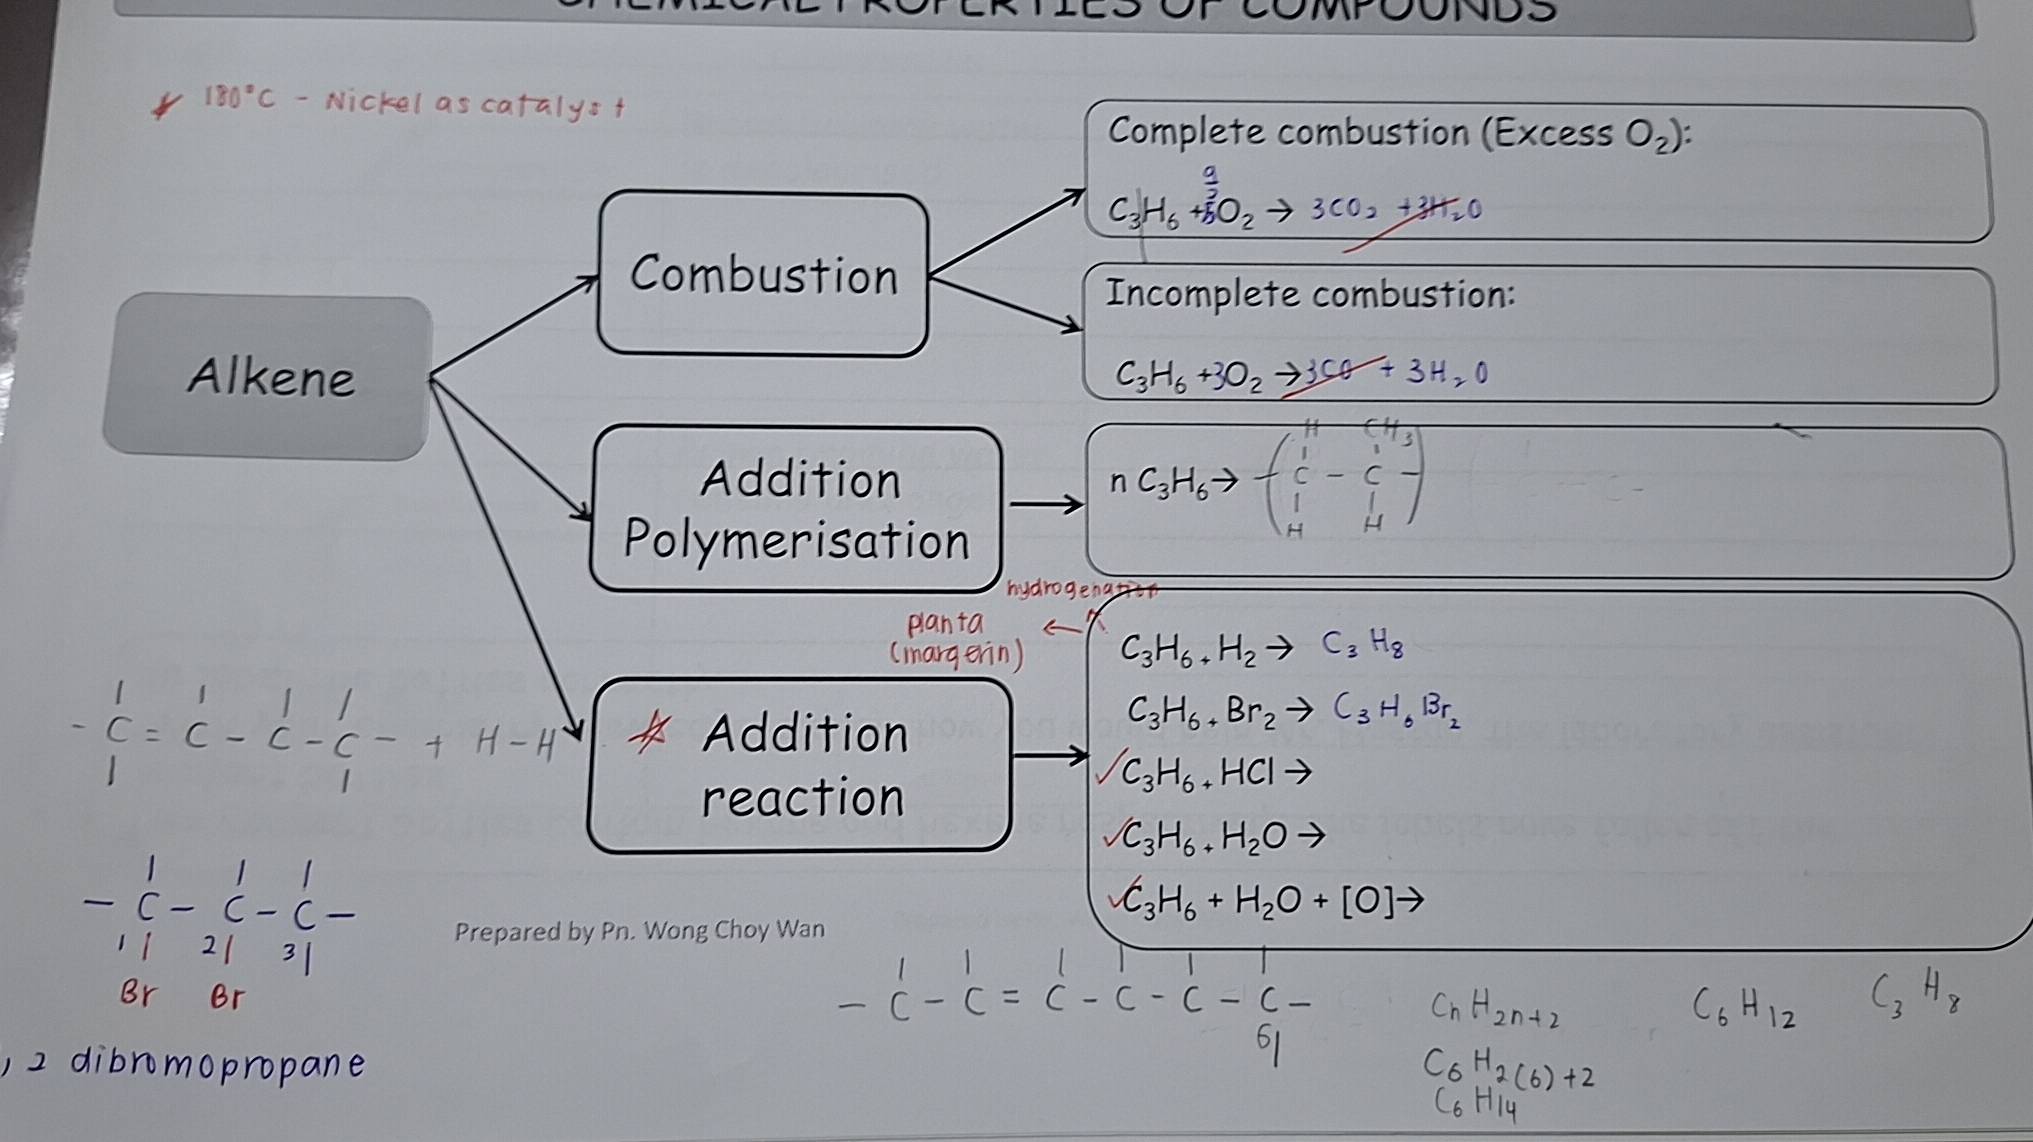 CHEMICAL PROPERTIES OF COMPOUNDS
180°C - Nickel as catalyst
Complete combustion (Excess O₂):
C₃H₆ + 9/2 O₂ → 3CO₂ + 3H₂O
Combustion
Incomplete combustion:
C₃H₆ + 3O₂ → 3CO + 3H₂O
Alkene
Addition
Polymerisation
H CH₃
n C₃H₆ → ( C - C )
H H
hydrogenation
planta
(margerin)
C₃H₆ + H₂ → C₃H₈
C₃H₆ + Br₂ → C₃H₆Br₂
✓C₃H₆ + HCl →
✓C₃H₆ + H₂O →
✓C₃H₆ + H₂O + [O] →
Addition
reaction
- C = C - C - C - + H - H
- C - C - C -
1 2 3
Br Br
, 2 dibromopropane
Prepared by Pn. Wong Choy Wan
- C - C = C - C - C - C -
6
CnH2n+2
C₆H2(6)+2
C₆H₁₄
C₆H₁₂
C₃H₈